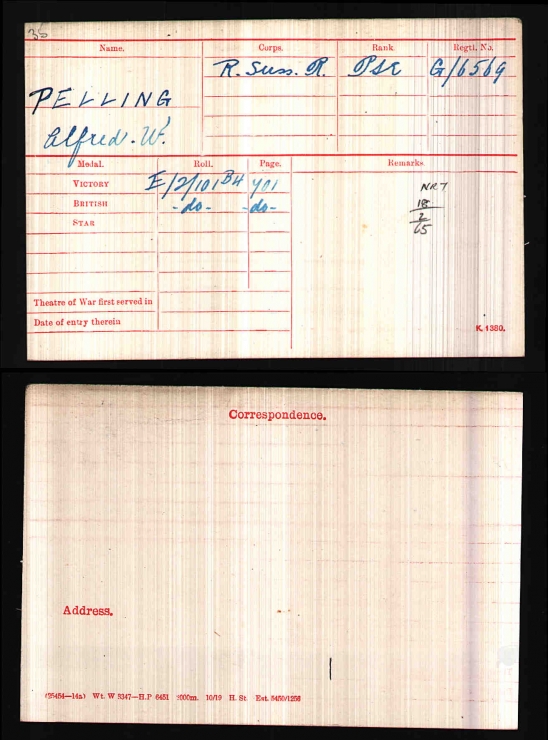 36
Name. Corps. Rank. Regtl. No.
R. Suss. R. Pte G/6569
PELLING
Alfred. W.
Medal. Roll. Page. Remarks
VICTORY E/2/101 B4 701
BRITISH -do- -do-
STAR
NRY
18
2
65
Theatre of War first served in
Date of entry therein
K. 1380.
Correspondence.
Address.
(25454—14a) Wt. W 5347—H.P 6451 2000m. 10/19 H. St. Est. 5450/1256